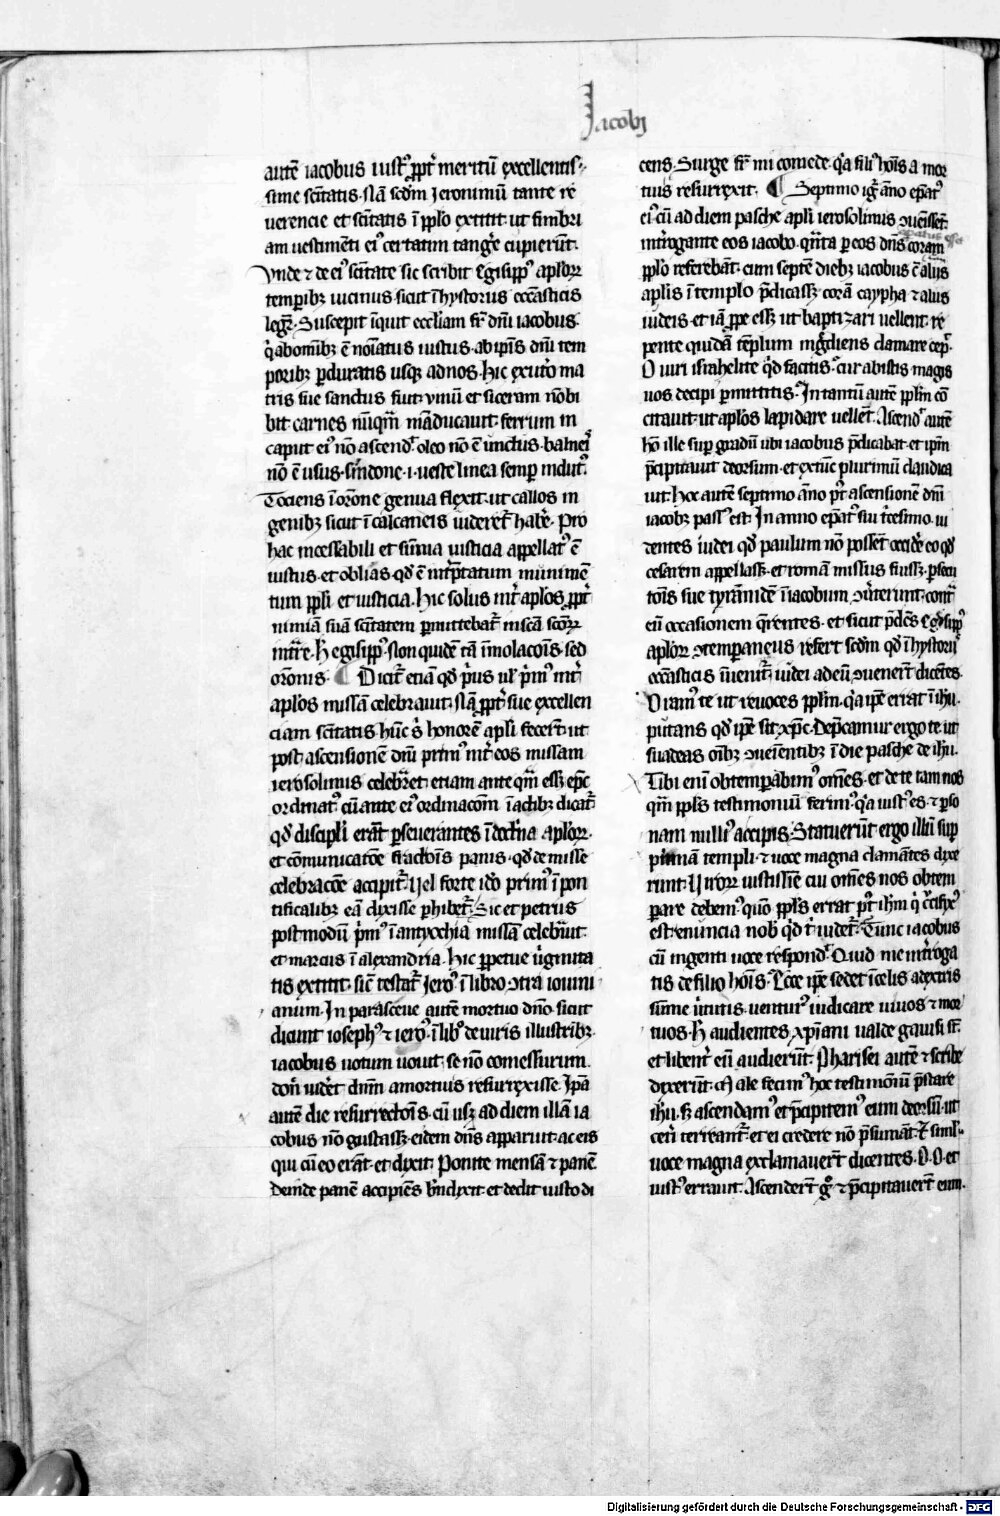 Jacobi
autē iacobus iust᷒ ꝓpt̄ meritū excellentis
sime sc̄itatis. Nā scd̄m Ieronimū tante re
uerencie et sc̄itatis ī pplo extitit. ut fimbri
am uestimēti ei᷒ certatim tanḡe cupierūt.
Vnde ⁊ de ei᷒ sc̄itate sic scribit Egisipp᷒ aplorꝝ
temporibꝫ uicinus. sicut ī hystoriis eccᷓasticis
legr̄. Suscepit īquit eccliam fr̄ dn̄i iacobus.
q̇ ab omībꝫ ē noīatus iustus. ab ipīs dn̄i tem
poribꝫ ꝑduratis usqꝫ ad nos. hic ex utᷓo ma
tris sue sanctus fuit. vinū et siceram nō bi
bit carnes nūqm̄ māducauit. ferrum in
caput ei᷒ nō ascend᷒. oleo nō ē unctus. balneis
nō ē usus. sīndone .i. ueste linea semꝑ indut᷒.
Tociens ī or̄one genua flexit. ut callos in
genibꝫ sicut ī calcaneis uideret᷒ hab̄e. Pro
hac incessabili et sum̄a iusticia appellat᷒ ē
iustus. et oblias. qd̄ ē int̄p̄tatum munimē
tum ppli et iusticia. Hic solus int̄ aplos ꝓpt̄
nimiā suā sc̄itatem ꝑmittebat᷒ in sc̄a sc̄orꝝ
int̄re. H̄ egisipp᷒. Non quidē tā īmolacōis. sed
or̄onis. ¶ Dicit᷒ etiā qd̄ p̄us ul᷒ p̄m᷒ int̄
aplos missā celebrauit. Nā ꝓpt̄ sue excellen
ciam sc̄itatis hūc s̄ honorē apli fecert̄. ut
post ascensionē dn̄i prim᷒ int̄ eos missam
ierosolimis celebrᷓet. etiam ante qm̄ essꝫ ep̄c
ordinat᷒. cū ante ei᷒ ordinacōm ī actibꝫ dicat᷒
qd̄ discipli erāt ꝑseuerantes ī doctᷓna aplorꝝ.
et cōmunicatōe fractōis panis. qd̄ de misse
celebracōe accipit᷒. Vel forte ido prim᷒ ī pon
tificalibꝫ eā dixisse ꝑhibet᷒. Sic et petrus
postmodū p̄m᷒ ī antyochia missā celebᷓuit.
et marcus ī alexandria. Hic ꝑpetue ūginita
tis extitit. sic̄ testat᷒ Jero᷒. ī libro ↄtra iouini
anum. In parasceue autē mortuo dn̄o. sicut
dicunt ioseph᷒ ⁊ iero᷒. ī lib᷒ de uiris illustribꝫ.
iacobus uotum uouit. se nō comessurum.
don̄ uid̄et dn̄m a mortuis resurrexisse. Ipā
autē die resurrectōis. cū usqꝫ ad diem illā ia
cobus nō gustassꝫ. eidem dn̄s apparuit. ac eis
qui cū eo erāt. et dixit. Ponite mensā ⁊ panē.
Deinde panē accipiēs bn̄dixit et dedit iusto di
cens. Surge fr̄ mi comede. qᷓa fili᷒ hoīs a mor
tuis resurrexit. ¶ Septimo igr̄ āno ep̄at᷒
ei᷒ cū ad diem pasche apli ierosolimis ↄuenīssēt.
int̄rogante eos iacobo. qn̄ta ꝑ eos dn̄s coram
pplo referebāt. cum septē diebꝫ iacobus cū aliis
aplis ī templo p̄dicassꝫ corā caypha ⁊ aliis
iudeis. et iā ꝓpe essꝫ ut baptizari uellent. re
pente quidā tēplum inḡdiens clamare cep᷒.
O uiri isrᷓahelite q̇d facitis. Cur a bistis magis
uos decipi ꝑmittitis. In tantū autē pplm̄ cō
citauit. ut aplos lapidare uellēt. Ascend᷒ autē
hō ille suꝑ gradū ubi iacobus p̄dicabat. et ipm̄
p̄cipitauit deorsum. et extūc plurimū claudica
uit. Hoc autē septimo āno pt̄ ascensionē dn̄i
iacobꝫ pass᷒ est. In anno ep̄at᷒ sui t̄cesimo. ui
dentes iudei qd̄ paulum nō possēt occid̄e eo qd̄
cesarem appellassꝫ. et romā missus fuissꝫ. ꝑsecu
tōis sue tyrānidē ī iacobum ↄūterunt. cont̄
eū occasionem q̄rentes. et sicut p̄dc̄s Egisipp᷒
aplorꝝ ↄtemporaneus refert scd̄m qd̄ ī hystoriis
eccᷓasticis īuenit᷒. iudei ad eū ↄuenert̄ dicētes.
Oram᷒ te ut reuoces pplm̄. qᷓa ipē errat ī ih̄u.
putans qd̄ ipē sit xp̄c. Dep̄camur ergo te ut
suadeas om̄bꝫ ↄueientibꝫ ī die pasche de ih̄u.
Tibi enī obtemꝑabim᷒ om̄es. et de te tam nos
qm̄ ppls̄ testimoniū ferim᷒. qᷓa iust᷒ es. ⁊ ꝑso
nam nulli᷒ accipis. Statuerūt ergo illū suꝑ
pinnā templi. ⁊ uoce magna clamātes dixe
runt. Virorꝝ iustissīe cui om̄es nos obtem
ꝑare debem᷒. quō ppls̄ errat pt̄ ih̄m q̇ c̄cifix᷒
est. enuncia nob᷒ q̇d t̄ uidet᷒. Tunc iacobus
cū ingenti uoce respond᷒. Quid me int̄roga
tis de filio hoīs. Ecce ipē sedet ī celis a dextris
sūme ūtutis. uentur᷒ iudicare uiuos ⁊ mor
tuos. H̄ audientes xp̄iani ualde gauisi st̄.
et libent̄ eū audierūt. Pharisei autē ⁊ scribe
dixerūt. Male fecim᷒ hoc testimōniū p̄stare
ih̄u. sꝫ ascendam᷒ et p̄cipitem᷒ eum deorsū. ut
cet̄i terreant᷒. et ei credere nō p̄sumāt. Et simꝉ
uoce magna exclamauert̄ dicentes. O. O. et
iust᷒ errauit. Ascendert̄ gͦ ⁊ p̄cipitauert̄ eum.
Digitalisierung gefördert durch die Deutsche Forschungsgemeinschaft - DFG